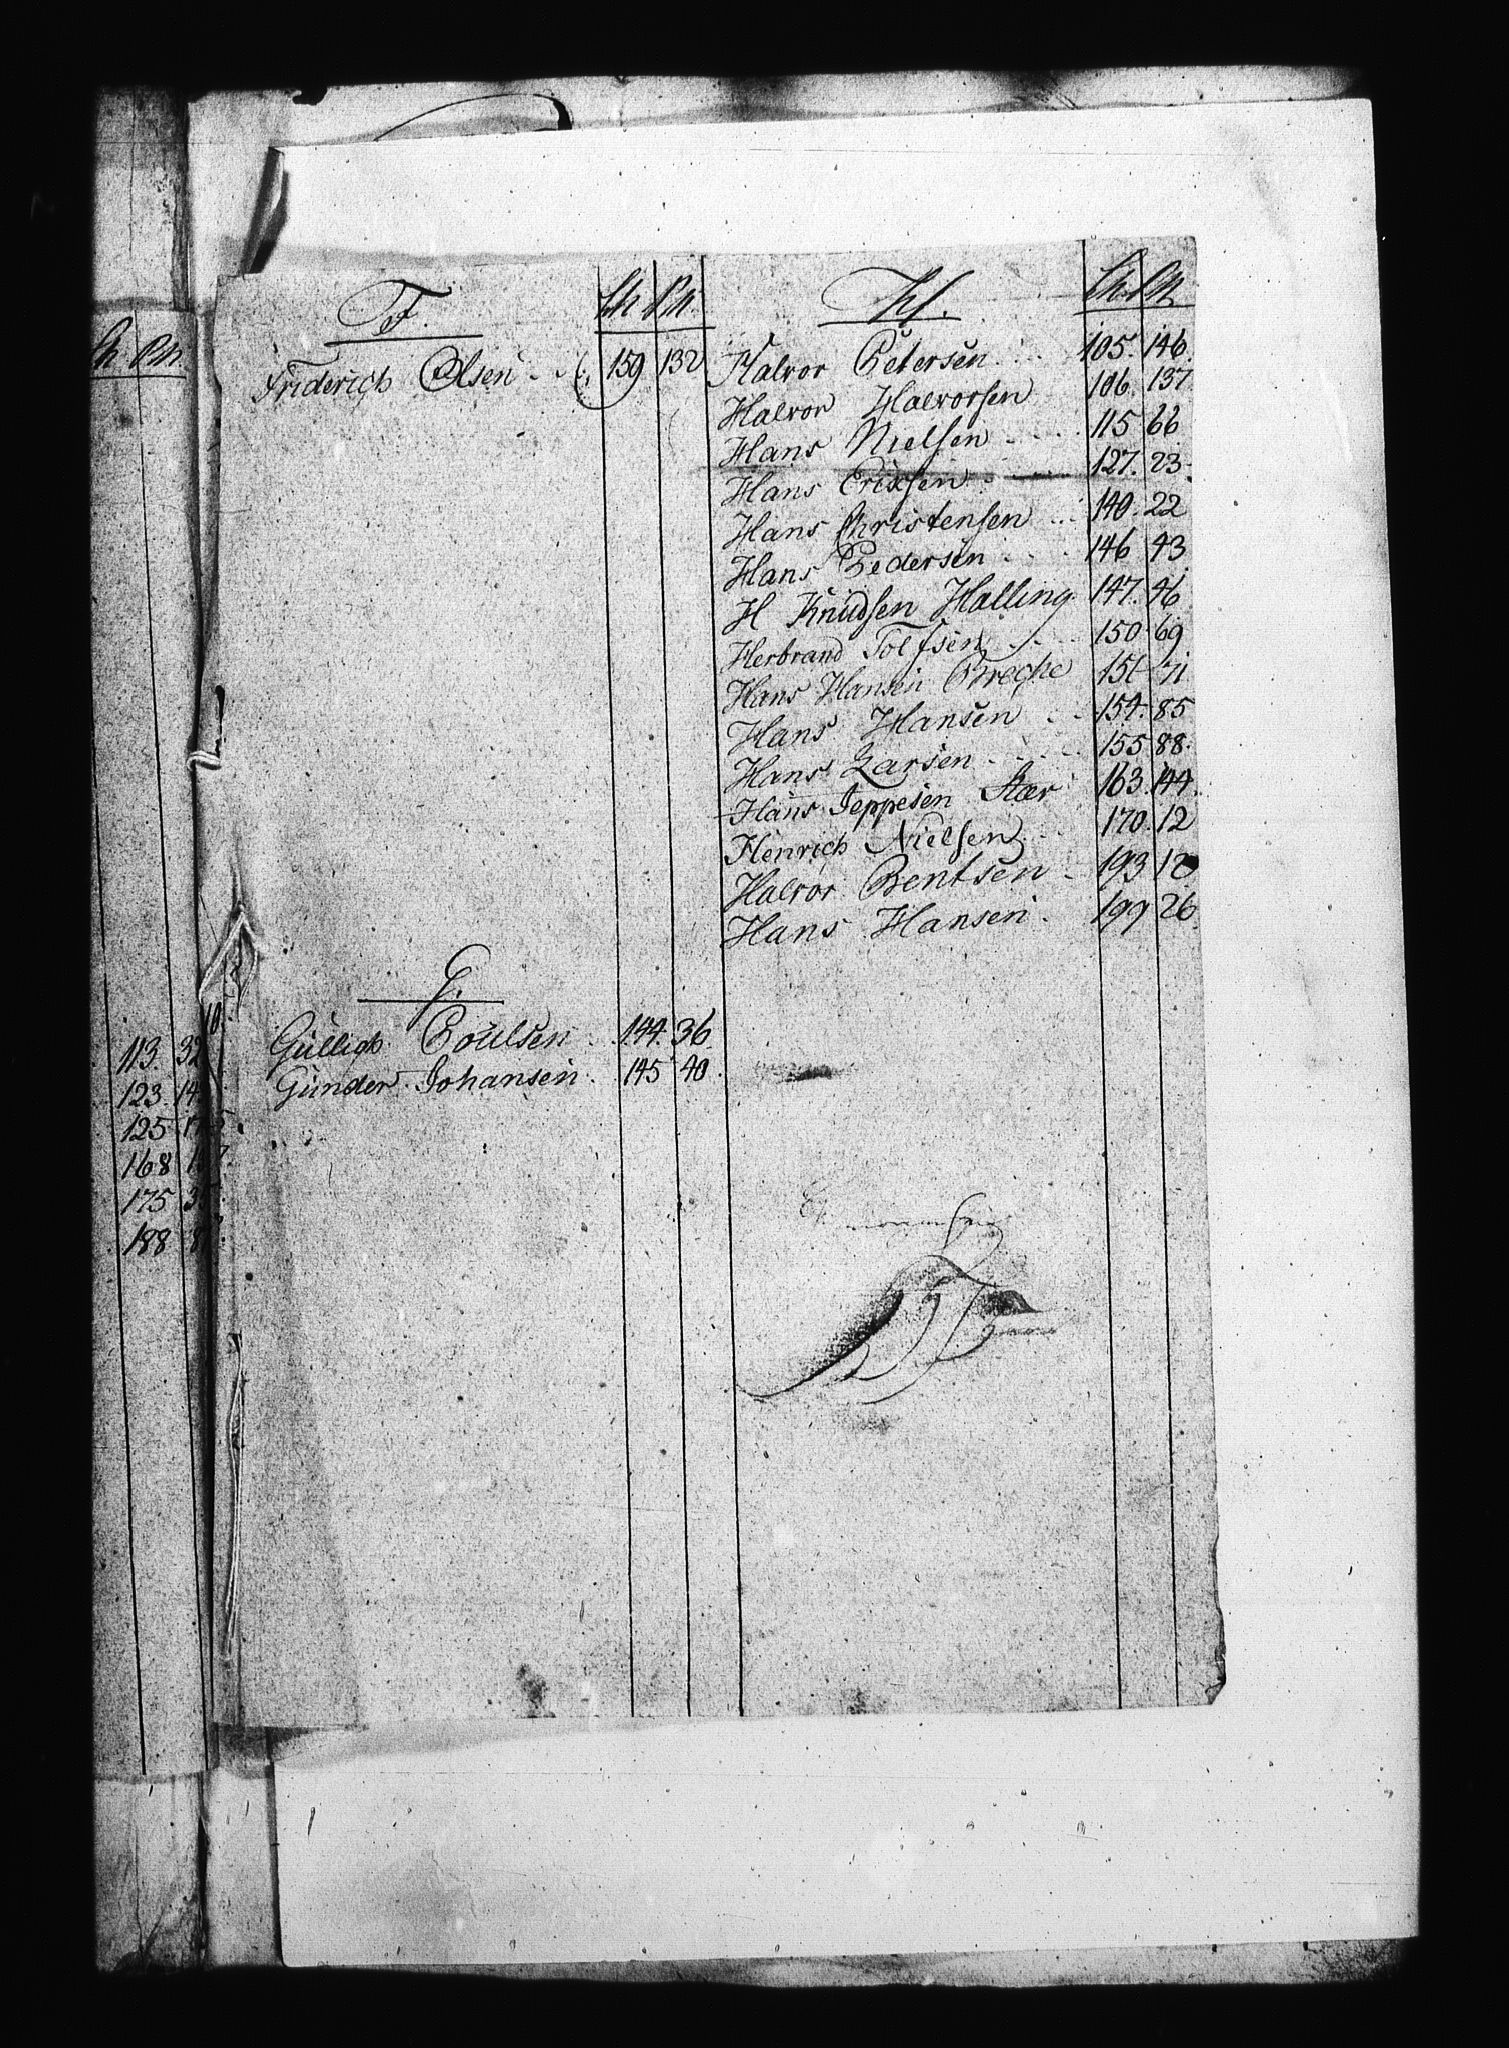 F.
Friderich Olsen 159 132
G.
Gülligh Poulsen 144. 36
Günder Johansen 145 40
H.
Halvor Petersen 105. 146.
Halvor Halvorsen 106. 137
Hans Nielsen 115 66
Hans Erixsen 127. 23.
Hans Christensen 140. 22
Hans Pedersen 146 43
H Knüdsen Halling 147. 46
Herbrand Tolfsen 150 69
Hans Hansen Breche 151 71
Hans Hansen 154. 85
Hans Larsen 155 88.
Hans Jeppesen Skær 163. 144.
Henrich Nielsen 170. 12
Halvor Bentsen 193
Hans Hansen 199 26.
113. 32
123. 14
125
168
175
188